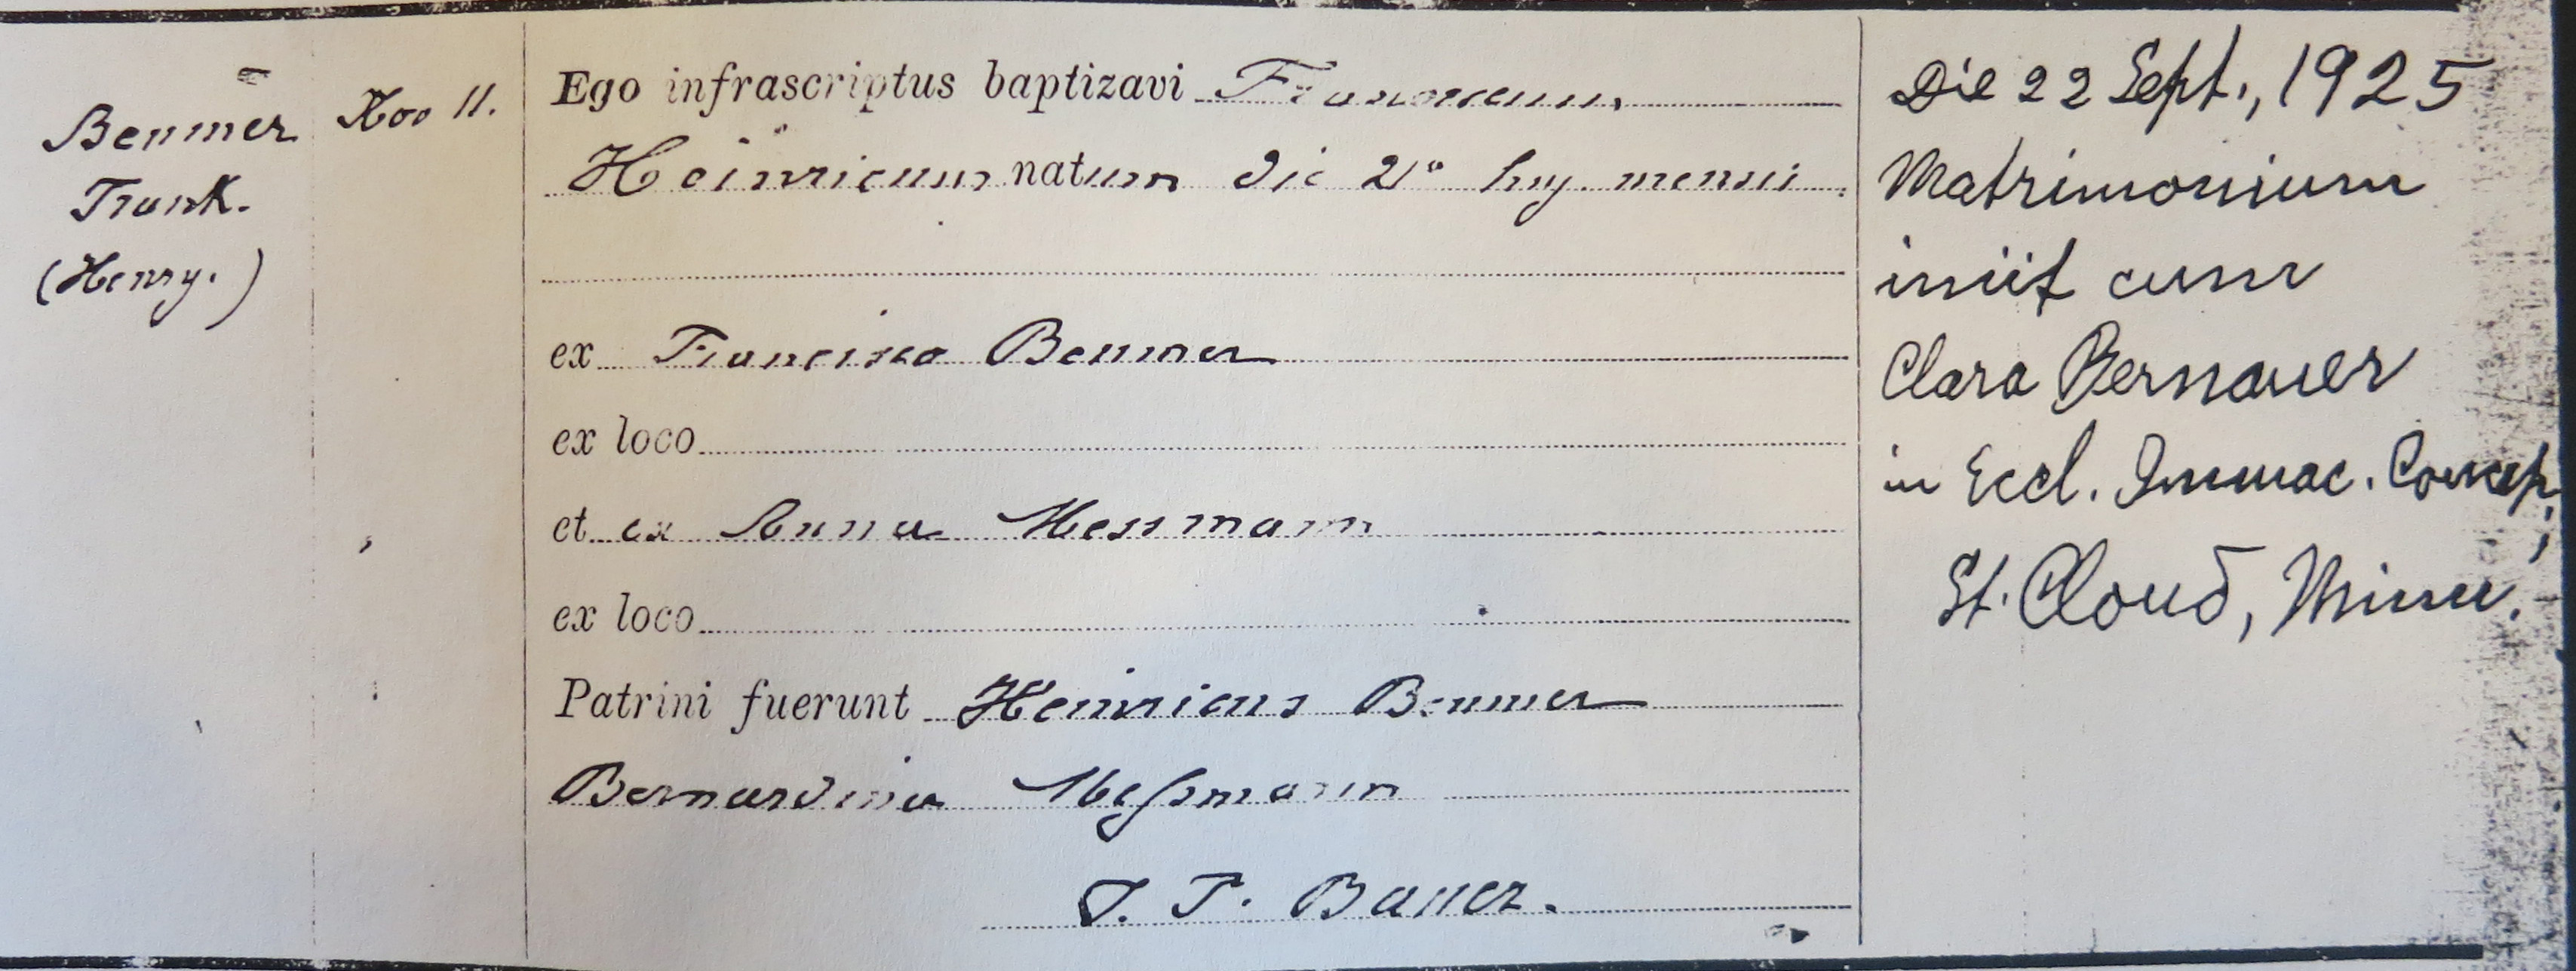 Benmer
Frank.
(Henry.)
Xoo 11.
Ego infrascriptus baptizavi Franciscum
Heinricum natum die 2º huj. mensis.
ex Francisco Benmer
ex loco
et ex Anna Messmann
ex loco
Patrini fuerunt Heinricus Benmer
Bernardina Meßmann
J. P. Bauer.
Die 22 Sept., 1925
Matrimonium
iniit cum
Clara Bernauer
in Eccl. Immac. Concep.,
St. Cloud, Minn.